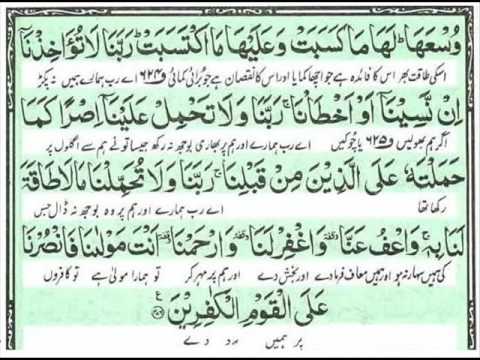 وُسْعَهَا ؕ لَهَا مَا كَسَبَتْ وَعَلَيْهَا مَا اكْتَسَبَتْ ؕ رَبَّنَا لَا تُؤَاخِذْنَاۤ
اسکی طاقت بھر اس کا فائدہ ہے جو اچھا کمایا اور اس کا نقصان ہے جو بُرائی کمائی ف۶۲۴ اے رب ہمارے ہمیں نہ پکڑ
اِنْ نَّسِيْنَاۤ اَوْ اَخْطَاْنَا ۚ رَبَّنَا وَلَا تَحْمِلْ عَلَيْنَاۤ اِصْرًا كَمَا
اگر ہم بھولیں ف۶۲۵ یا چوکیں اے رب ہمارے اور ہم پر بھاری بوجھ نہ رکھ جیسا تو نے ہم سے اگلوں پر
حَمَلْتَهٗ عَلَى الَّذِيْنَ مِنْ قَبْلِنَا ۚ رَبَّنَا وَلَا تُحَمِّلْنَا مَا لَا طَاقَةَ
رکھا تھا اے رب ہمارے اور ہم پر وہ بوجھ نہ ڈال جس
لَنَا بِهٖ ۚ وَاعْفُ عَنَّا ۥ وَاغْفِرْ لَنَا ۥ وَارْحَمْنَا ۥ اَنْتَ مَوْلٰىنَا فَانْصُرْنَا
کی ہمیں سہار نہ ہو اور ہمیں معاف فرمادے اور بخش دے اور ہم پر مہر کر تو ہمارا مولیٰ ہے تو کافروں
عَلَى الْقَوْمِ الْكٰفِرِيْنَ
پر ہمیں مدد دے